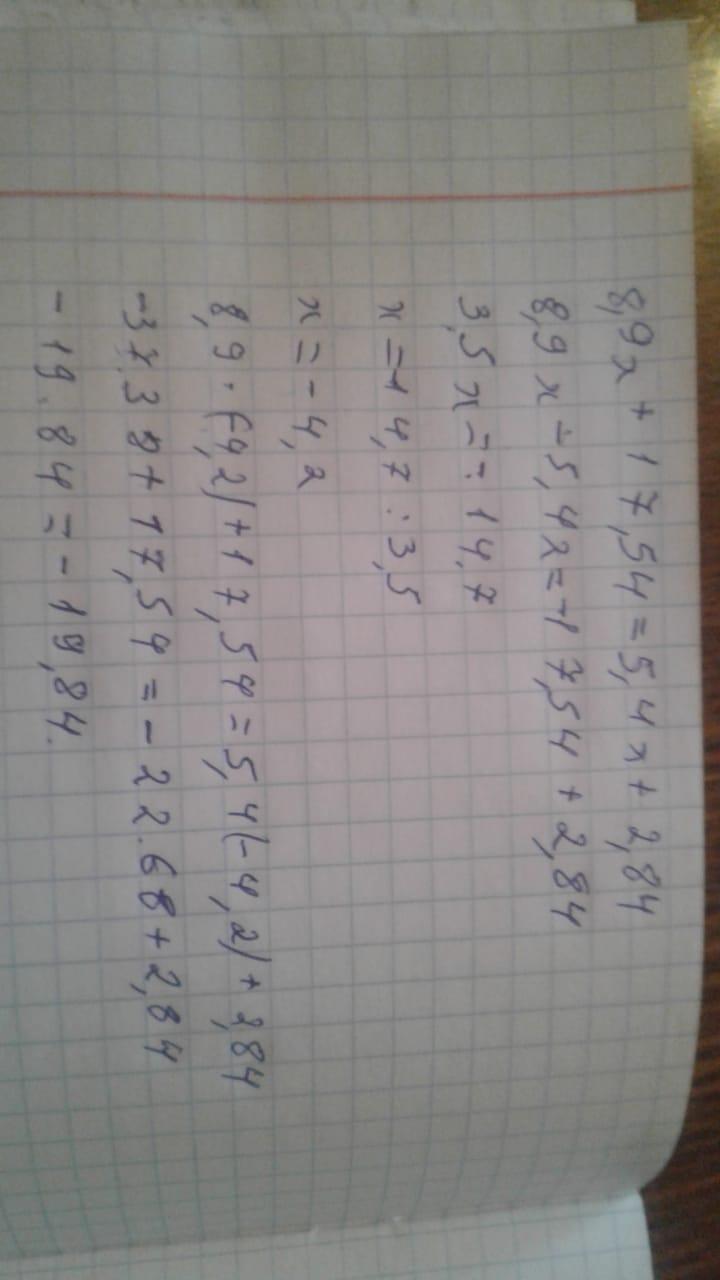 8,9x + 17,54 = 5,4x + 2,84
8,9x - 5,4x = -17,54 + 2,84
3,5x = - 14,7
x = -14,7 : 3,5
x = - 4,2
8,9 · (-4,2) + 17,54 = 5,4(-4,2) + 2,84
-37.38 + 17,54 = - 22.68 + 2,84
- 19.84 = - 19,84.